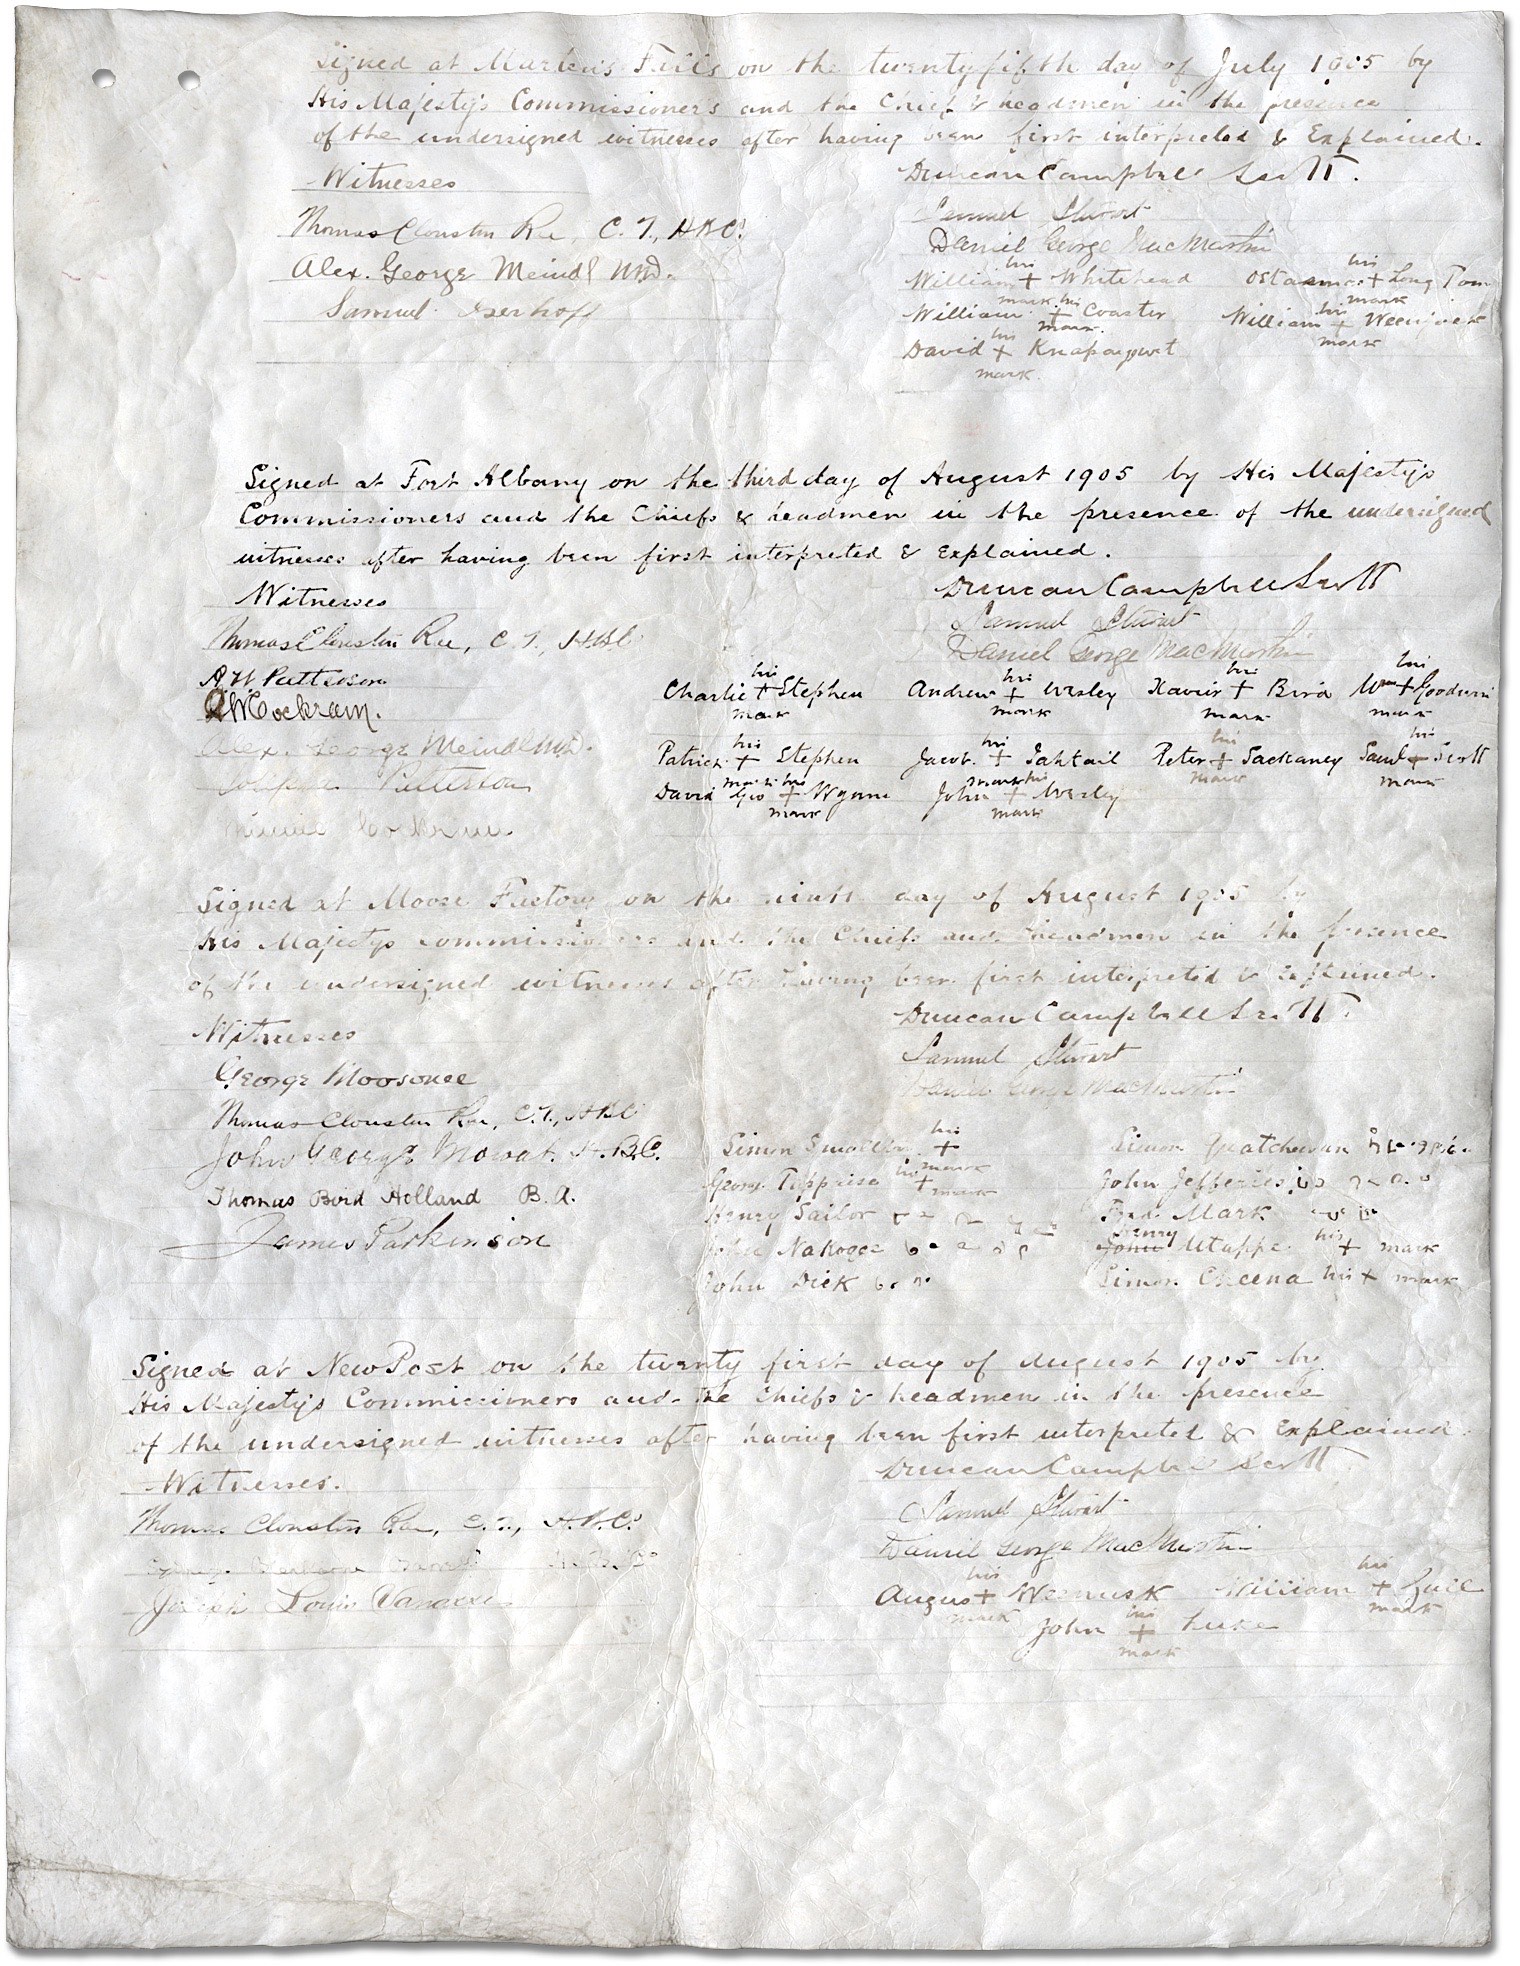 Signed at Marten's Falls on the twenty fifth day of July 1905 by
His Majesty's Commissioners and the Chief & headmen in the presence
of the undersigned witnesses after having been first interpreted & Explained.
Witnesses
Duncan Campbell Scott.
Samuel Stewart
Thomas Clouston Rae, C. T., H B C.
Daniel George MacMartin
Alex. George Meindl M.D.
William his + mark Whitehead
his + mark Long Tom
Samuel Iserhoff
William his + mark Coaster
William his + mark
David his + mark Knapayswet
Signed at Fort Albany on the third day of August 1905 by His Majesty's
Commissioners and the Chiefs & headmen in the presence of the undersigned
witnesses after having been first interpreted & explained.
Witnesses
Duncan Campbell Scott
Samuel Stewart
Thomas Clouston Rae, C. T., H.B.C
Daniel George MacMartin
A W Patterson
Charlie his + mark Stephen
Andrew his + mark Wesley
Xavier his + mark Bird
Wm his + mark Goodwin
Cockram.
Alex. George Meindl M.D.
Patrick his + mark Stephen
Jacob his + mark Tahtail
Peter his + mark Sackaney
Saml his + mark Scott
Patterson
David Geo his + mark Wynne
John his + mark Wesley
Minnie Cockram
Signed at Moose Factory on the ninth day of August 1905 by
His Majesty's commissioners and the Chiefs and headmen in the presence
of the undersigned witnesses after having been first interpreted & explained.
Witnesses
Duncan Campbell Scott.
Samuel Stewart
George Moosonee
Daniel George MacMartin
Thomas Clouston Rae, C. T., H.B.C
John George Mowat. H. B. C.
Simon Smallboy his + mark
Simon Quatchewan
George Tappaise his + mark
John Jefferies
Thomas Bird Holland B. A.
Henry Sailor
Fred. Mark
James Parkinson
John Nakogee
John Henry Utappe his + mark
John Dick
Simon Cheena his + mark
Signed at New Post on the twenty first day of August 1905 by
His Majesty's Commissioners and the Chiefs & headmen in the presence
of the undersigned witnesses after having been first interpreted & explained.
Witnesses.
Duncan Campbell Scott
Samuel Stewart
Thomas Clouston Rae, C. T., H. B. C.
Daniel George MacMartin
H. B. C
Angus his + mark Weenusk
William his + mark Gull
Joseph Louis Vanasse
John his + mark Luke